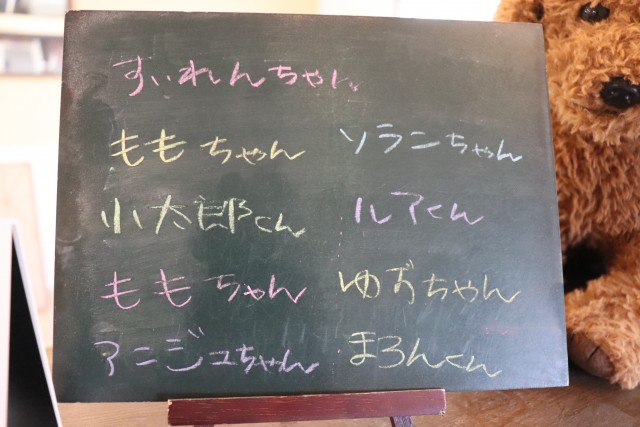 すいれんちゃん
ももちゃん
ソランちゃん
小太郎くん
ルアくん
ももちゃん
ゆずちゃん
アンジュちゃん
まろんくん